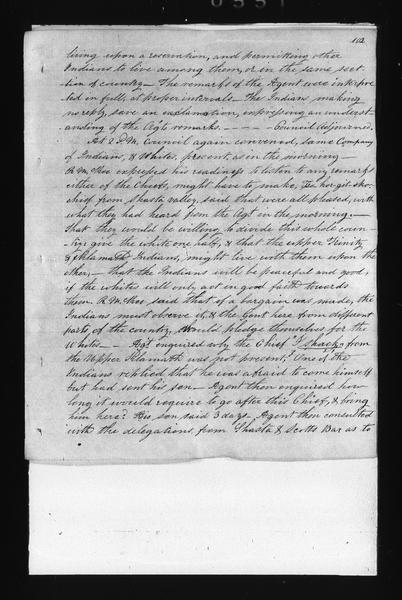 102
living upon a reservation, and permitting other
Indians to live among them, or in the same sec-
tion of country — The remarks of the Agent were interpre
ted in full, at proper intervals — The Indians making
no reply, save an exclamation, expressing an underst-
anding of the Agts remarks. — — — Council adjourned.
At 2 P.M. Council again convened, same Company
of Indians, & Whites, present, as in the morning —
R. McKee expressed his readiness to listen to any remarks
either of the Chiefs, might have to make,
chief from Shasta valley, said that were all pleased, with
what they had heard from the Agt in the morning. —
That they would be willing to divide this whole coun-
try; give the white one half, & that the upper Trinity
& Klamath Indians, might live with them upon the
other, — that the Indians will be peaceful and good,
if the whites will only act in good faith towards
them. R. McKee, said, that if a bargain was made, the
Indians must observe it, & the Gent here from different
parts of the country, would pledge themselves for the
Whites — Agt enquired why the Chief from
the Upper Klamath was not present? One of the
Indians replied that he was afraid to come himself
but had sent his son — Agent then enquired how
long it would require to go after this Chief, & bring
him here? His son, said 3 days — Agent then consulted
with the delegations, from Shasta & Scotts Bar as to